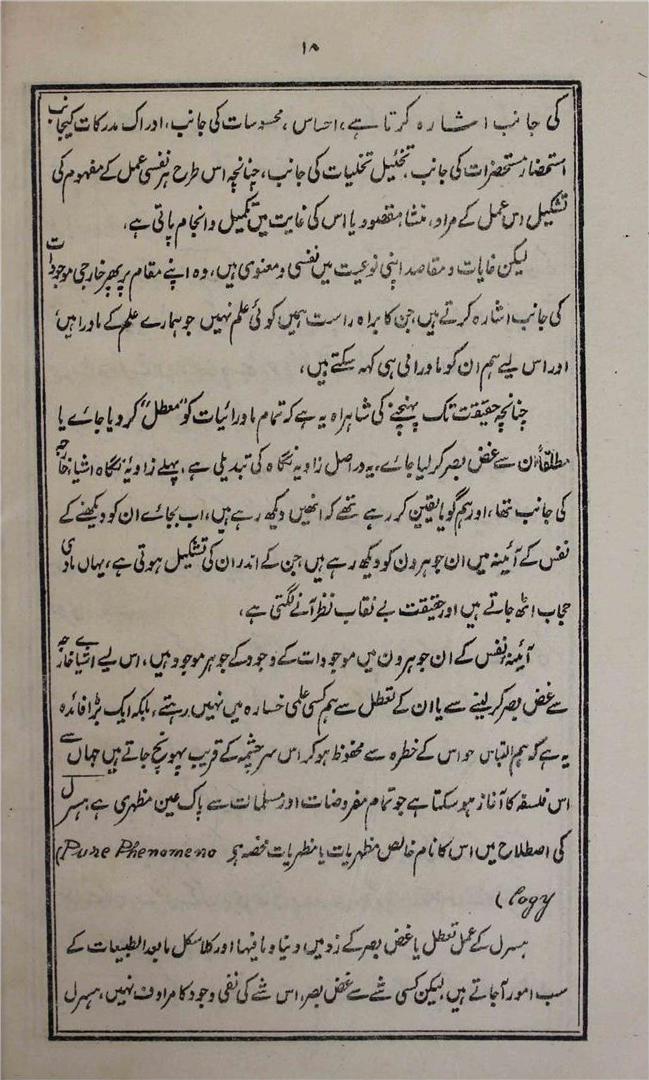 ۱۸
کی جانب اشارہ کرتا ہے، احساس، محسوسات کی جانب، ادراک مدرکات کیجانب
استحضار مستحضرات کی جانب تخئیل تخلیات کی جانب، چنانچہ اس طرح ہر نفسی عمل کے مفہوم کی
تشکیل اس عمل کے مراد، منشا مقصود یا اس کی غایت میں تکمیل و انجام پاتی ہے،
لیکن غایات و مقاصد اپنی نوعیت میں نفسی و معنوی ہیں، وہ اپنے مقام پر پھر خارجی موجودات
کی جانب اشارہ کرتے ہیں، جن کا براہ راست ہمیں کوئی علم نہیں جو ہمارے علم کے ماورا ہیں
اور اس لیے ہم ان کو ماورائی ہی کہہ سکتے ہیں،
چنانچہ حقیقت تک پہنچنے کی شاہراہ یہ ہے کہ تمام ماورائیات کو "معطل" کر دیا جائے یا
مطلقاً ان سے غض بصر کر لیا جائے، یہ دراصل زاویہ نگاہ کی تبدیلی ہے، پہلے زاویۂ نگاہ اشیا خارجیہ
کی جانب تھا، اور ہم گویا یقین کر رہے تھے کہ انھیں دیکھ رہے ہیں، اب بجائے ان کو دیکھنے کے
نفس کے آئینہ میں ان جوہرون کو دیکھ رہے ہیں جن کے اندر ان کی تشکیل ہوتی ہے، یہاں مادی
حجاب اٹھ جاتے ہیں اور حقیقت بے نقاب نظر آنے لگتی ہے،
آئینۂ نفس کے ان جوہرون میں موجودات کے وجود کے جوہر موجود ہیں، اس لیے اشیا خارجیہ
سے غض بصر کر لینے سے یا ان کے تعطل سے ہم کسی علمی خسارہ میں نہیں رہتے، بلکہ ایک بڑا فائدہ
یہ ہے کہ ہم التباس حواس کے خطرہ سے محفوظ ہو کر اس سرچشمہ کے قریب پہونچ جاتے ہیں جہاں سے
اس فلسفہ کا آغاز ہو سکتا ہے جو تمام مفروضات اور مسلمات سے پاک عین مظہری ہے ہسرل
کی اصطلاح میں اس کا نام خالص مظہریات یا مظہریات محضہ ہے (Pure Phenomeno
logy)
ہسرل کے عمل تعطل یا غض بصر کے زد میں دنیا و مافیہا اور کلاسکل مابعد الطبیعات کے
سب امور آ جاتے ہیں، لیکن کسی شے سے غض بصر، اس شے کی نفی وجود کا مرادف نہیں، ہسرل